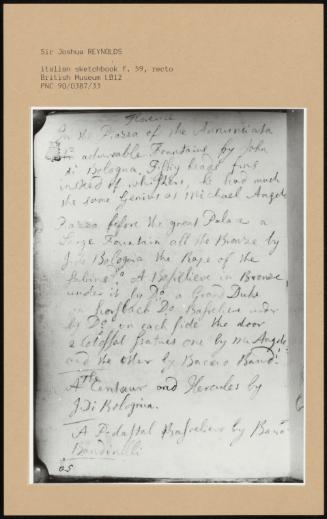 Sir Joshua REYNOLDS
italian sketchbook f. 59, recto
British Museum LB12
PNC 90/0387/33
Florence
In the Piazza of the Annunciata
admirable Fountains by John
di Bologna, Fishy heads fins
instead of whiskers, he had much
the same Genius as Michael Angelo
Piazza before the great Palace a
Large Fountain all the Bronze by
J. di Bologna the Rape of the
Sabines Do. A Basrelieve in Bronze
under it by Do. a Grand Duke
on horsback Do. Basrelieve under
by Do. on each side the door
2 Colossal statues one by M. Angelo
and the other by Baccio Band:
A Centaur and Hercules by
J. Di Bologna.
A Pedastal Basrelieve by
Bandinelli
65